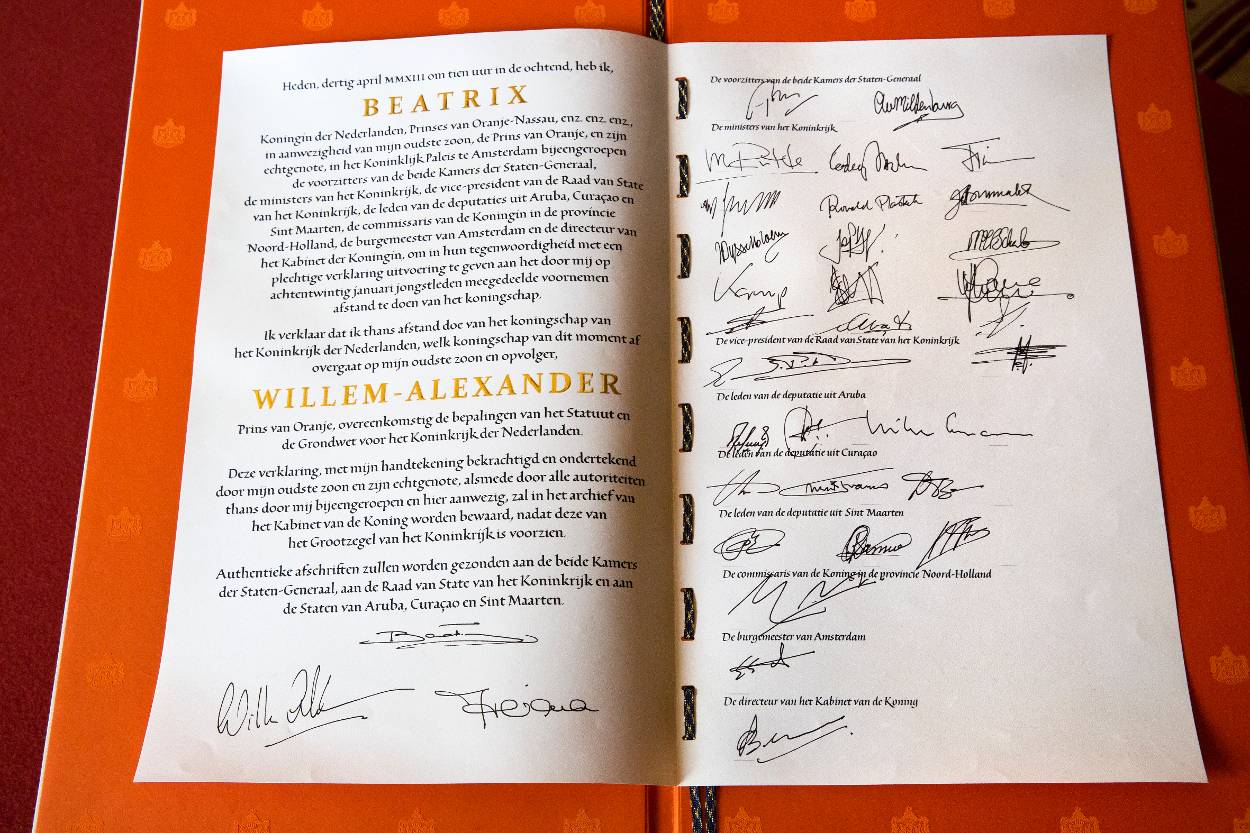 Heden, dertig april MMXIII om tien uur in de ochtend, heb ik,
BEATRIX
Koningin der Nederlanden, Prinses van Oranje-Nassau, enz. enz. enz.,
in aanwezigheid van mijn oudste zoon, de Prins van Oranje, en zijn
echtgenote, in het Koninklijk Paleis te Amsterdam bijeengeroepen
de voorzitters van de beide Kamers der Staten-Generaal,
de ministers van het Koninkrijk, de vice-president van de Raad van State
van het Koninkrijk, de leden van de deputaties uit Aruba, Curaçao en
Sint Maarten, de commissaris van de Koningin in de provincie
Noord-Holland, de burgemeester van Amsterdam en de directeur van
het Kabinet der Koningin, om in hun tegenwoordigheid met een
plechtige verklaring uitvoering te geven aan het door mij op
achtentwintig januari jongstleden meegedeelde voornemen
afstand te doen van het koningschap.
Ik verklaar dat ik thans afstand doe van het koningschap van
het Koninkrijk der Nederlanden, welk koningschap van dit moment af
overgaat op mijn oudste zoon en opvolger,
WILLEM-ALEXANDER
Prins van Oranje, overeenkomstig de bepalingen van het Statuut en
de Grondwet voor het Koninkrijk der Nederlanden.
Deze verklaring, met mijn handtekening bekrachtigd en ondertekend
door mijn oudste zoon en zijn echtgenote, alsmede door alle autoriteiten
thans door mij bijeengeroepen en hier aanwezig, zal in het archief van
het Kabinet van de Koning worden bewaard, nadat deze van
het Grootzegel van het Koninkrijk is voorzien.
Authentieke afschriften zullen worden gezonden aan de beide Kamers
der Staten-Generaal, aan de Raad van State van het Koninkrijk en aan
de Staten van Aruba, Curaçao en Sint Maarten.
De voorzitters van de beide Kamers der Staten-Generaal
De ministers van het Koninkrijk
Kamp
De vice-president van de Raad van State van het Koninkrijk
De leden van de deputatie uit Aruba
De leden van de deputatie uit Curaçao
De leden van de deputatie uit Sint Maarten
De commissaris van de Koning in de provincie Noord-Holland
De burgemeester van Amsterdam
De directeur van het Kabinet van de Koning